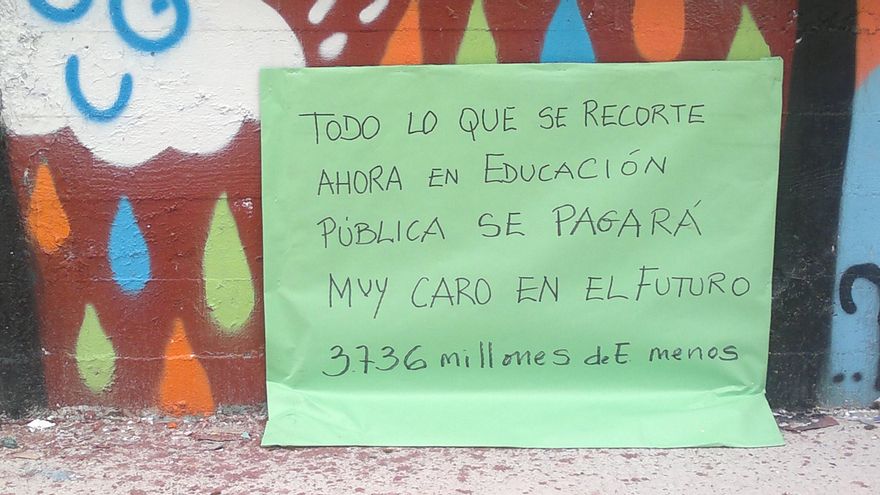 TODO LO QUE SE RECORTE
AHORA EN EDUCACIÓN
PÚBLICA SE PAGARÁ
MUY CARO EN EL FUTURO
3.736 millones de E menos